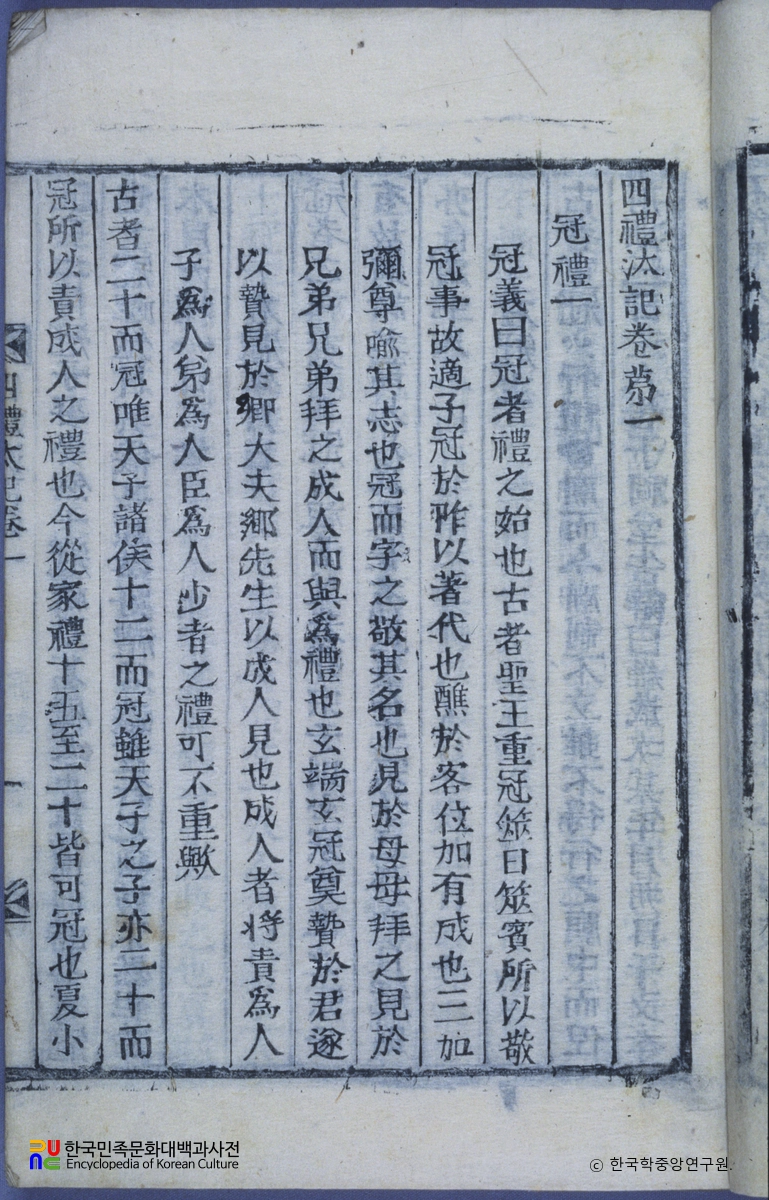 四禮汰記卷苐一
冠禮一
冠義曰冠者禮之始也古者聖王重冠筮日筮賓所以敬
冠事故適子冠於阼以著代也醮於客位加有成也三加
彌尊喩其志也冠而字之敬其名也見於母母拜之見於
兄弟兄弟拜之成人而與爲禮也玄端玄冠奠贄於君遂
以贄見於卿大夫鄕先生以成人見也成人者將責爲人
子爲人弟爲人臣爲人少者之禮可不重歟
古者二十而冠唯天子諸侯十二而冠雖天子之子亦二十而
冠所以責成人之禮也今從家禮十五至二十皆可冠也夏小
四禮汰記卷一
한국민족문화대백과사전
Encyclopedia of Korean Culture
ⓒ 한국학중앙연구원.